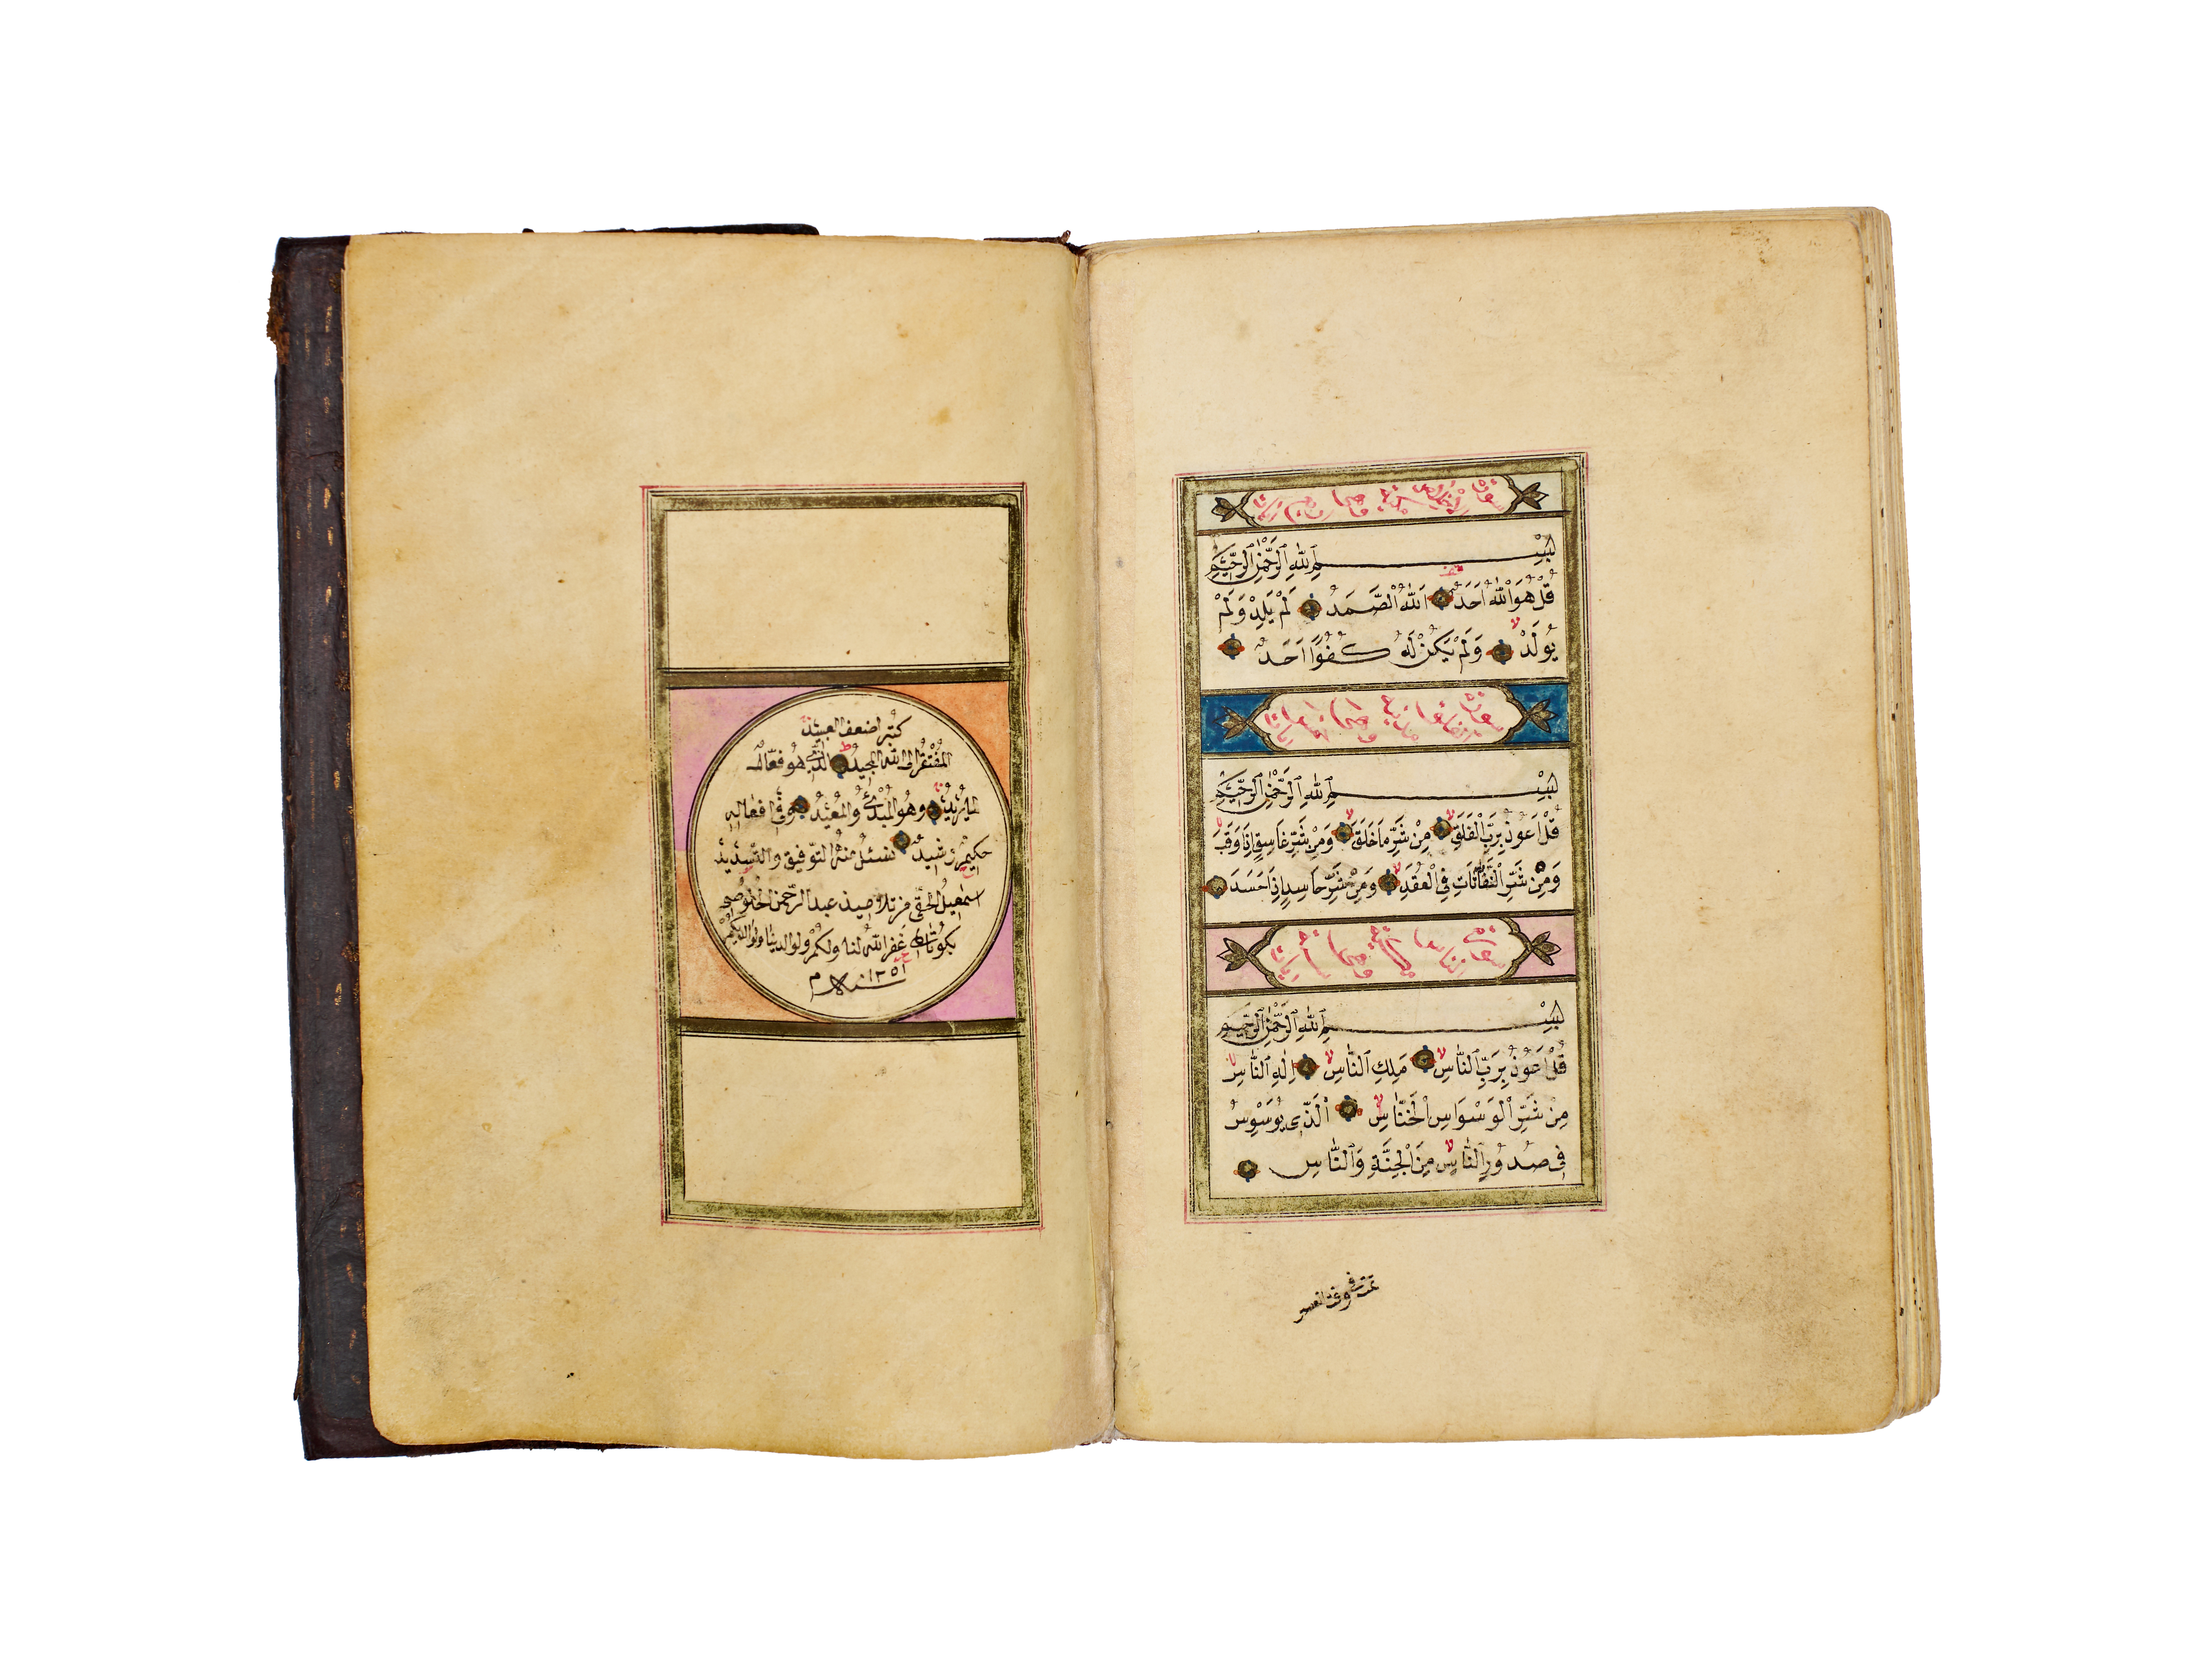 سورة الاخلاص مكية وهى اربع ايات
بِسْمِ اللّٰهِ الرَّحْمٰنِ الرَّحٖيمِ
قُلْ هُوَ اللّٰهُ اَحَدٌ اَللّٰهُ الصَّمَدُ لَمْ يَلِدْ وَلَمْ
يُولَدْ وَلَمْ يَكُنْ لَهُ كُفُوًا اَحَدٌ
سورة الفلق مدنية وهى خمس ايات
بِسْمِ اللّٰهِ الرَّحْمٰنِ الرَّحٖيمِ
قُلْ اَعُوذُ بِرَبِّ الْفَلَقِ مِنْ شَرِّ مَا خَلَقَ وَمِنْ شَرِّ غَاسِقٍ اِذَا وَقَبَ
وَمِنْ شَرِّ النَّفَّاثَاتِ فِى الْعُقَدِ وَمِنْ شَرِّ حَاسِدٍ اِذَا حَسَدَ
سورة الناس وهى ايات
بِسْمِ اللّٰهِ الرَّحْمٰنِ الرَّحٖيمِ
قُلْ اَعُوذُ بِرَبِّ النَّاسِ مَلِكِ النَّاسِ اِلٰهِ النَّاسِ
مِنْ شَرِّ الْوَسْوَاسِ الْخَنَّاسِ اَلَّذِى يُوَسْوِسُ
فِى صُدُورِ النَّاسِ مِنَ الْجِنَّةِ وَالنَّاسِ
تمت فى وقت العصر
كتبه اضعف العبيد
المُفْتَقِرُ الى الله المجيدُ الذى هُو فعّالٌ
لما يُرِيدُ وهُو المُبْدِئُ والمُعِيدُ وفى افعاله
حكيمٌ رشيدٌ نسئلُ منهُ التوّفيق والتسديد
اسمٰعيلُ الحقّى من تلاميذ عبد الرّحمن الخلوصى
غَفَر اللّٰهُ لنا ولكُمْ ولوالدينا ولوالديكم
سنه ١٢٥١ م